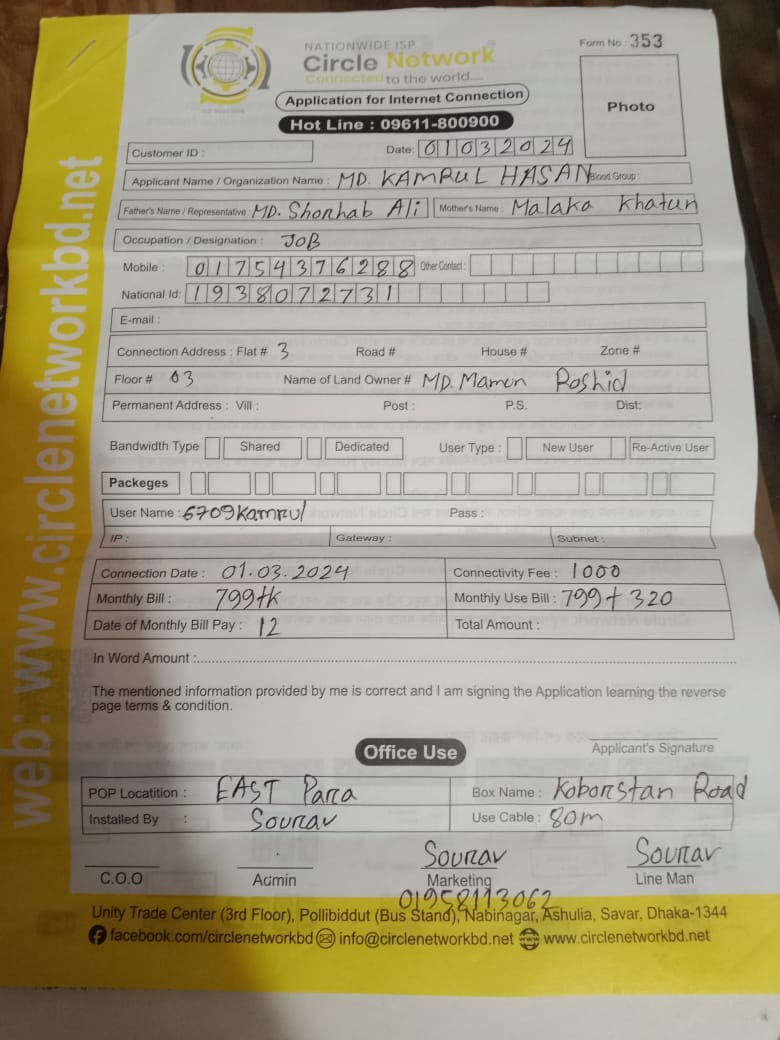 NATIONWIDE ISP
Circle Network
Connected to the world....
Form No : 353
Application for Internet Connection
Hot Line : 09611-800900
Photo
web: www.circlenetworkbd.net
Customer ID :
Date: 01032024
Applicant Name / Organization Name : MD. KAMRUL HASAN Blood Group :
Father's Name / Representative MD. Shorhab Ali Mother's Name : Malaka Khatun
Occupation / Designation : JOB
Mobile : 01754376288 Other Contact :
National Id: 1938072731
E-mail :
Connection Address : Flat # 3 Road # House # Zone #
Floor # 03 Name of Land Owner # MD. Mamun Roshid
Permanent Address : Vill : Post : P.S. Dist:
Bandwidth Type Shared Dedicated User Type : New User Re-Active User
Packeges
User Name : 6709kamrul Pass :
IP : Gateway : Subnet :
Connection Date : 01.03.2024 Connectivity Fee : 1000
Monthly Bill : 799tk Monthly Use Bill : 799+320
Date of Monthly Bill Pay : 12 Total Amount :
In Word Amount :
The mentioned information provided by me is correct and I am signing the Application learning the reverse
page terms & condition.
Applicant's Signature
Office Use
POP Locatition : EAST Para Box Name : Koborstan Road
Installed By : Sourav Use Cable : 80m
Sourav Sourav
C.O.O Admin Marketing Line Man
01958113062
Unity Trade Center (3rd Floor), Pollibiddut (Bus Stand), Nabinagar, Ashulia, Savar, Dhaka-1344
facebook.com/circlenetworkbd info@circlenetworkbd.net www.circlenetworkbd.net